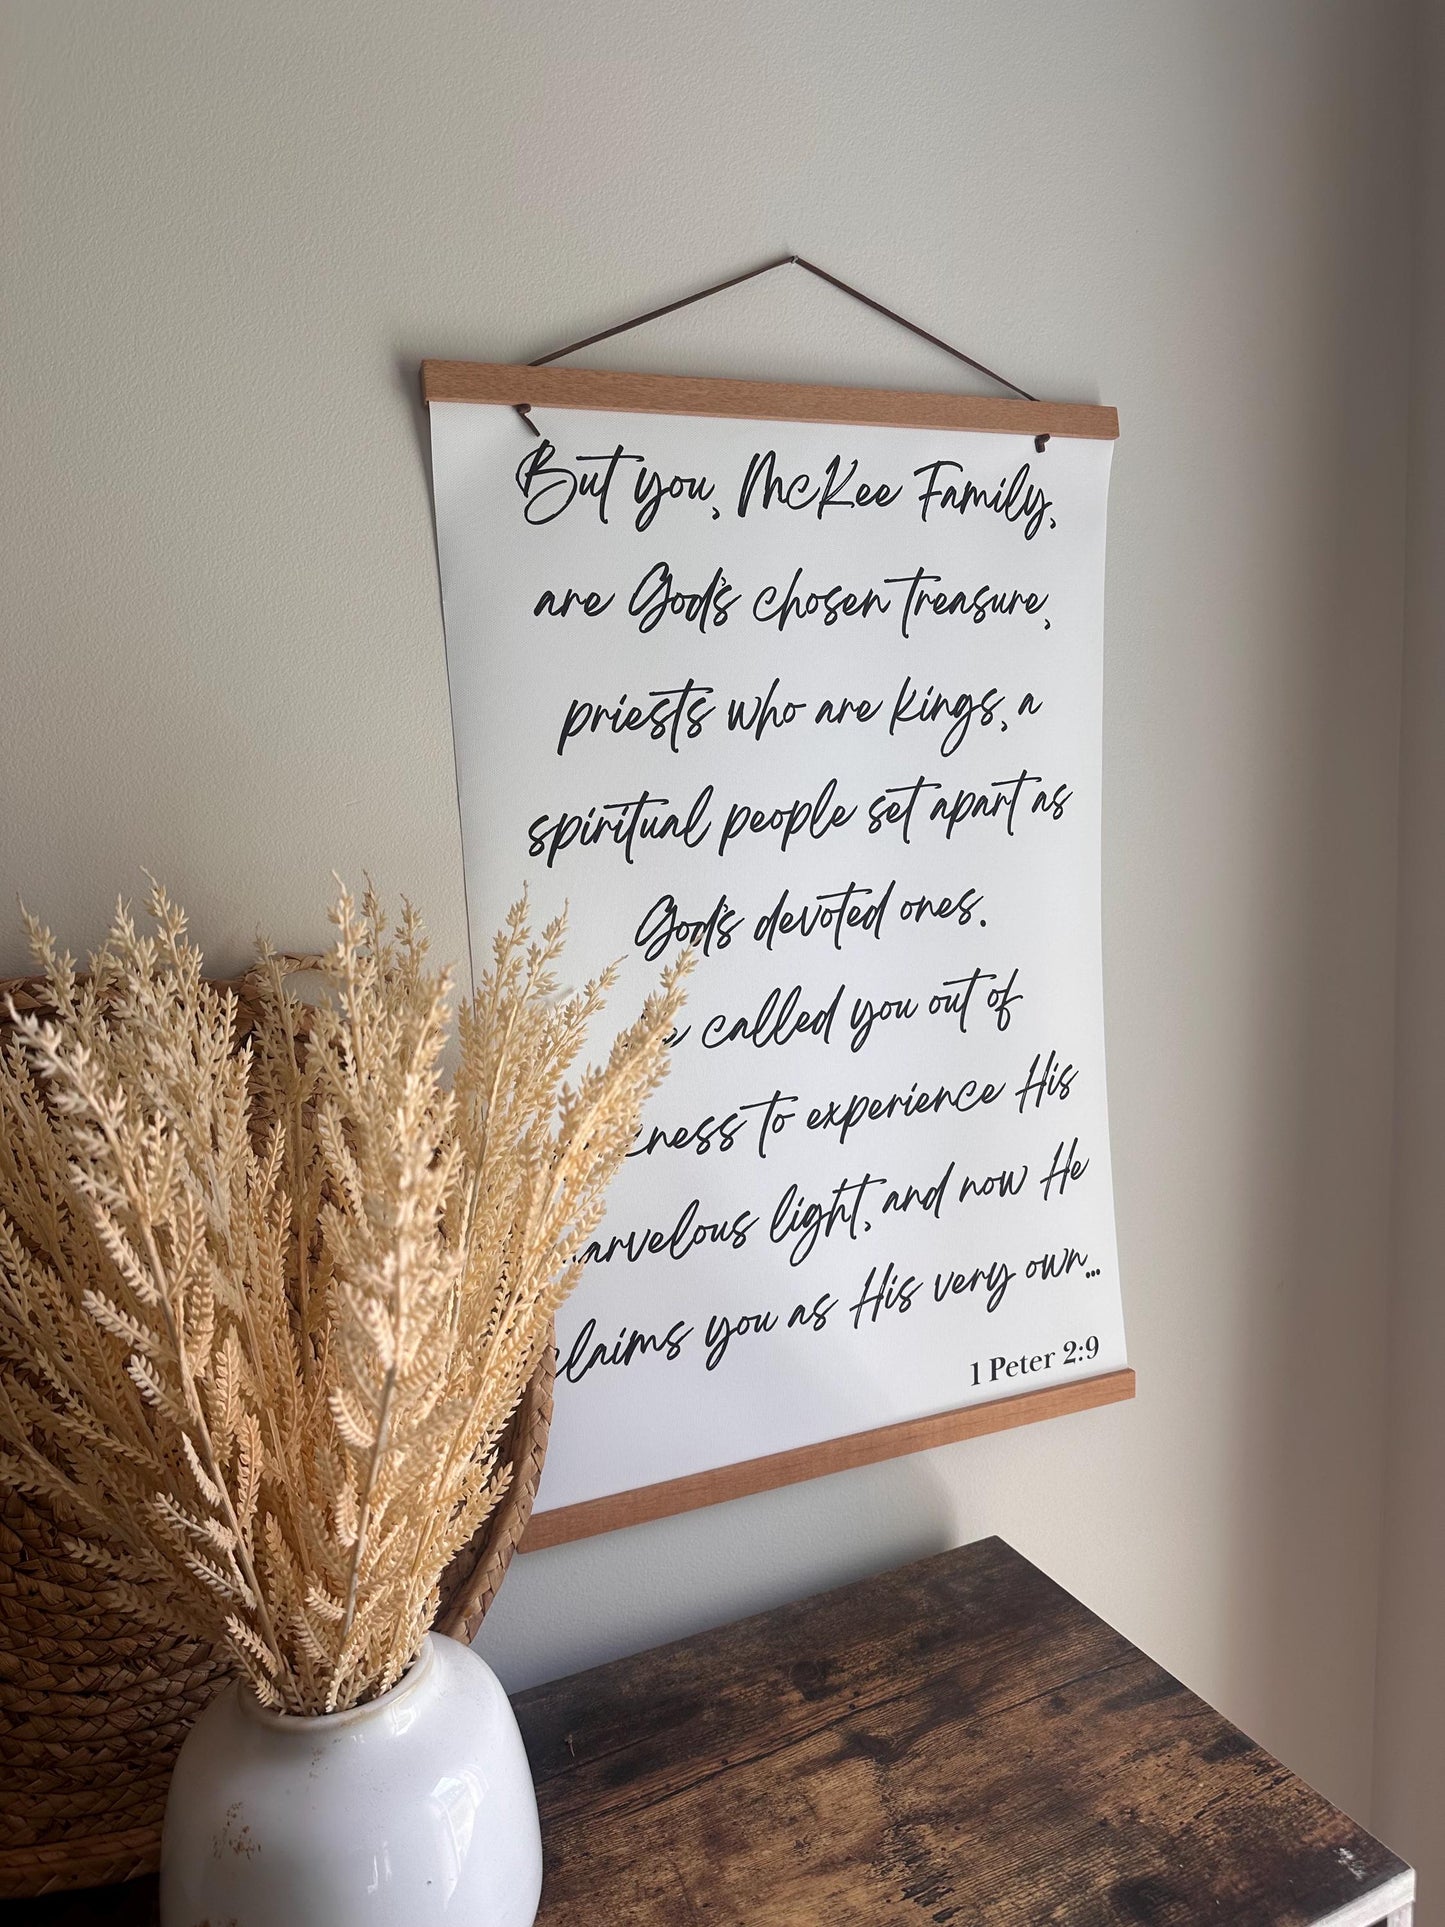 But you, McKee Family,
are God's chosen treasure,
priests who are kings, a
spiritual people set apart as
God's devoted ones.
called you out of
to experience His
marvelous light, and now He
claims you as His very own...
1 Peter 2:9